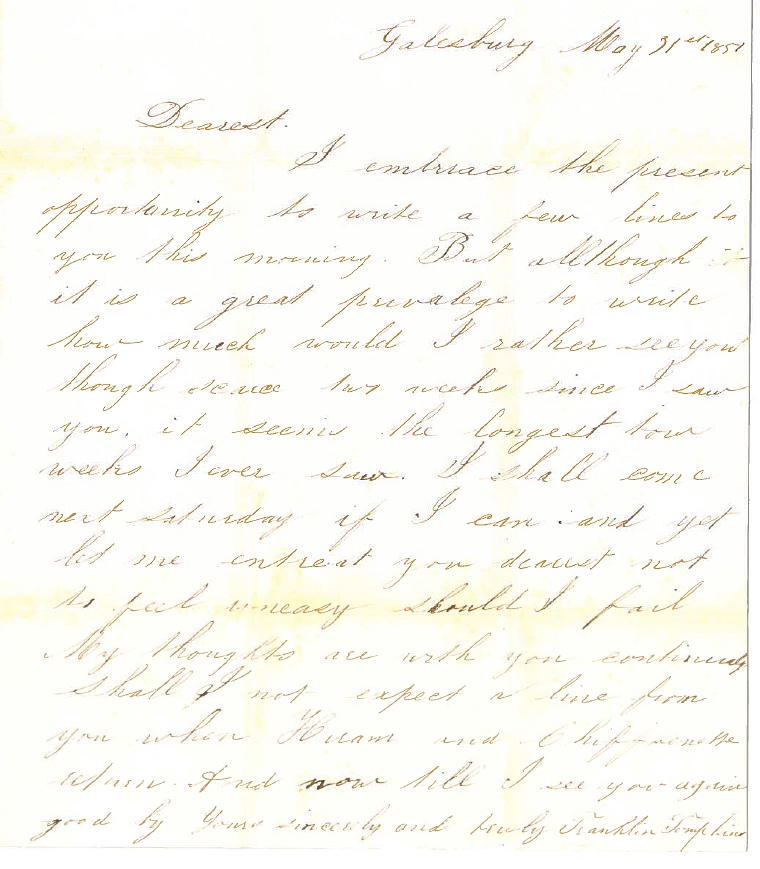 Galesburg May 31st 1851
Dearest.
I embrace the present
opportunity to write a few lines to
you this morning. But allthough it
it is a great privalege to write
how much would I rather see you
though scarce two weeks since I saw
you. it seems the longest tow
weeks I ever saw. I shall come
next saturday if I can and yet
let me entreat you dearest not
to feel uneasy should I fail
My thoughts are with you continualy
Shall I not expect a line from
you when Hiram and
return. And now till I see you again
good by Yours sincerely and truly Franklin Tompkins